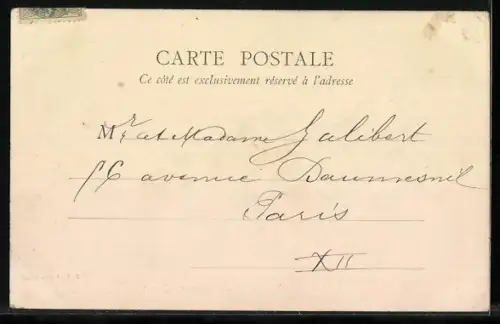 CARTE POSTALE
Ce côté est exclusivement réservé à l'adresse
Mr et Madame Galibert
56 avenue Daumesnil
Paris
XII